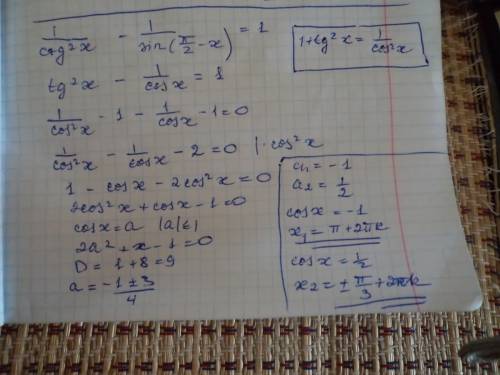 1/ctg²x - 1/sin(π/2 - x) = 1
1+tg²x = 1/cos²x
tg²x - 1/cosx = 1
1/cos²x - 1 - 1/cosx - 1 = 0
1/cos²x - 1/cosx - 2 = 0 | · cos²x
1 - cosx - 2cos²x = 0
2cos²x + cosx - 1 = 0
cosx = a |a|≤1
2a² + x - 1 = 0
D = 1 + 8 = 9
a = (-1 ± 3)/4
a₁ = -1
a₂ = 1/2
cosx = -1
x₁ = π + 2πk
cosx = 1/2
x₂ = ± π/3 + 2πk